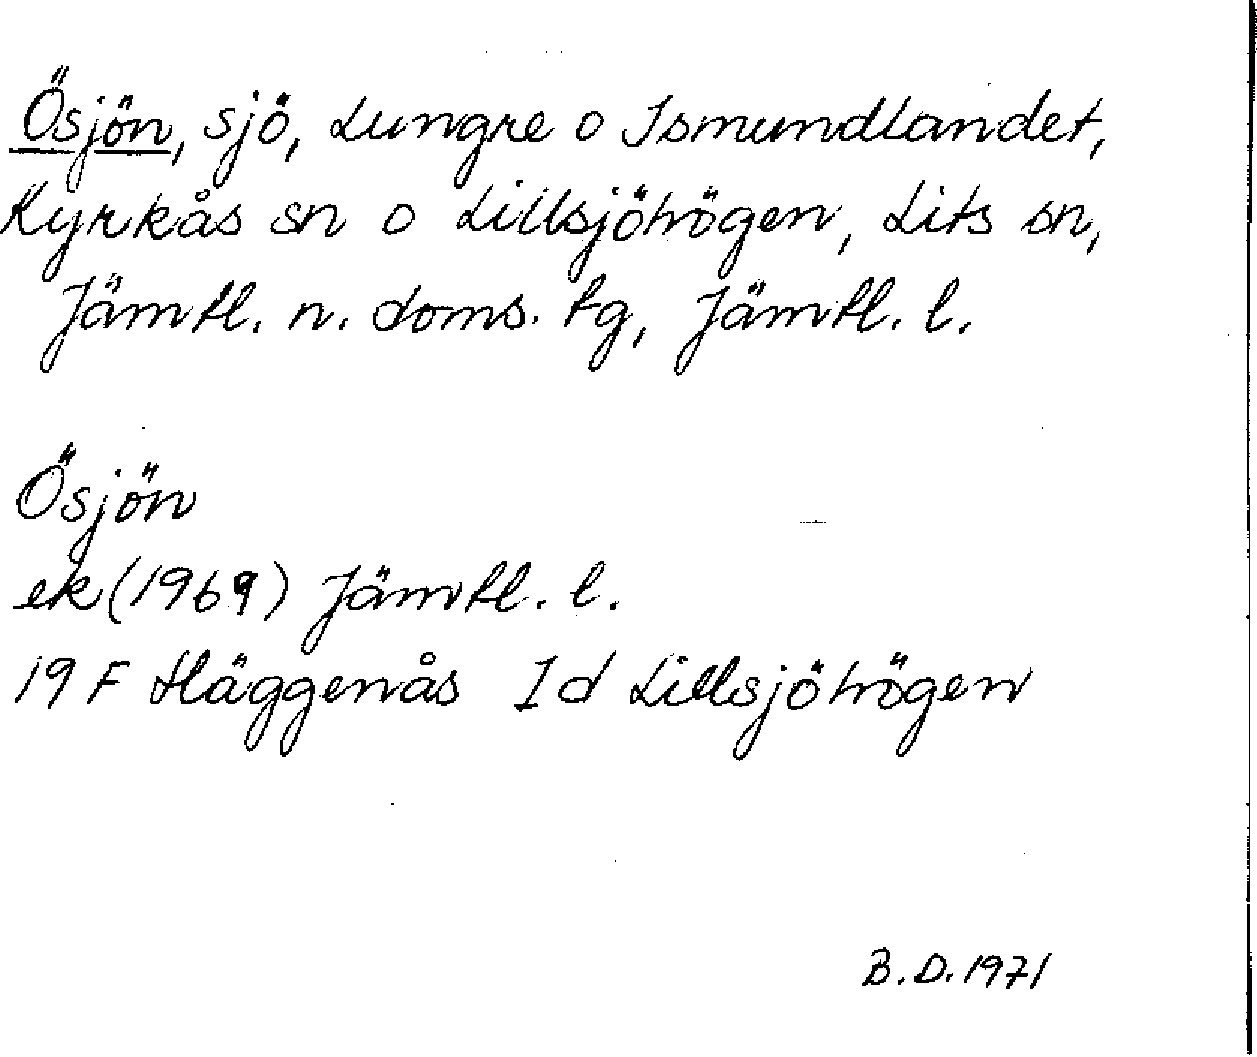 Ösjön, sjö, Lungre o Ismundlandet,
Kyrkås sn o Lillsjöhögen, Lits sn,
Jämtl. n. doms. tg, Jämtl. l.
Ösjön
ek (1969) Jämtl. l.
19 F Häggenås Id Lillsjöhögen
B.D. 1971